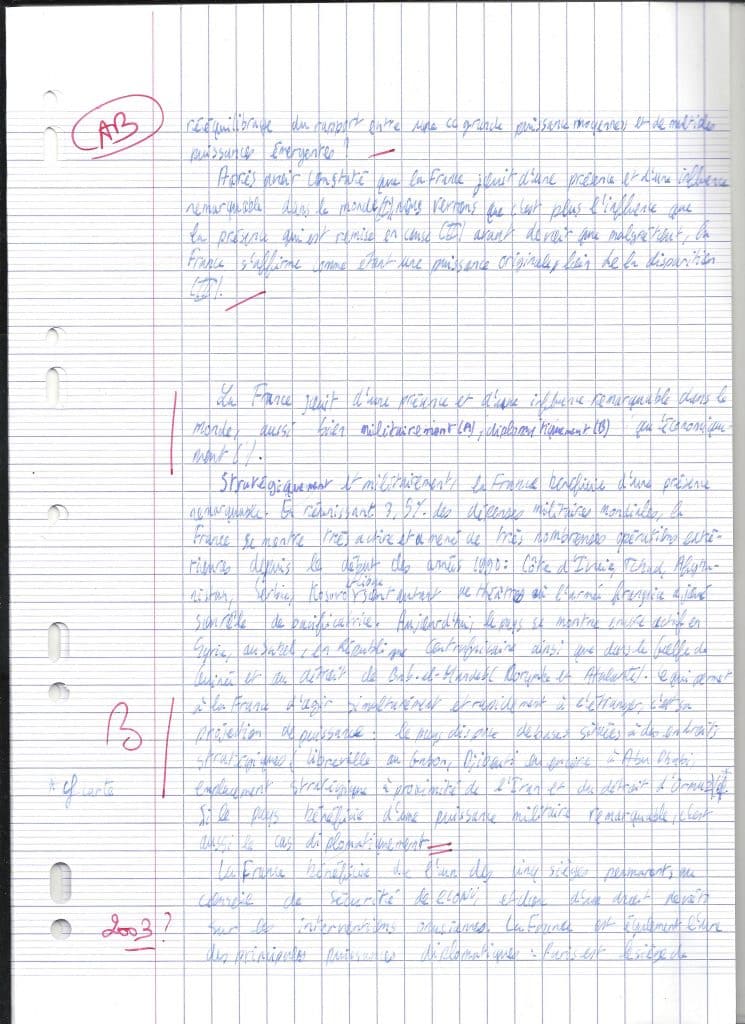 AB
rééquilibrage du rapport entre une grande puissance moyenne et de multiples
puissances émergentes ?
Après avoir constaté que la France jouit d'une présence et d'une influence
remarquable dans le monde (I) nous verrons que c'est plus l'influence que
la présence qui est remise en cause (II) avant de voir que malgré tout, la
France s'affirme comme étant une puissance originale, loin de la disparition
(III).
La France jouit d'une présence et d'une influence remarquable dans le
monde, aussi bien militairement (A), diplomatiquement (B) qu'économique-
ment (C).
Stratégiquement et militairement, la France bénéficie d'une présence
remarquable. En réunissant 3,5% des dépenses militaires mondiales, la
France se montre très active et a mené de très nombreuses opérations exté-
rieures depuis le début des années 1990 : Côte d'Ivoire, Tchad, Afgha-
nistan, Serbie, Kosovo sont autant de théâtres où l'armée française a joué
son rôle de pacificatrice. Aujourd'hui, le pays se montre encore actif en
Syrie, au Sahel, en République Centrafricaine ainsi que dans le Golfe de
Guinée et au détroit de Bab-el-Mandeb Corymbe et Atalante). Ce qui permet
à la France d'agir simultanément et rapidement à l'étranger, c'est sa
B
projection de puissance : le pays dispose de bases situées à des endroits
stratégiques (Libreville au Gabon, Djibouti ou encore à Abu Dhabi,
* cf carte
emplacement stratégique à proximité de l'Iran et du détroit d'Ormuz)*.
Si le pays bénéficie d'une puissance militaire remarquable, c'est
aussi le cas diplomatiquement.
La France bénéficie de l'un des cinq sièges permanents au
conseil de sécurité de l'ONU, et donc d'un droit de véto
2003 ?
sur les interventions onusiennes. La France est également l'une
des principales puissances diplomatiques : Paris est le siège de